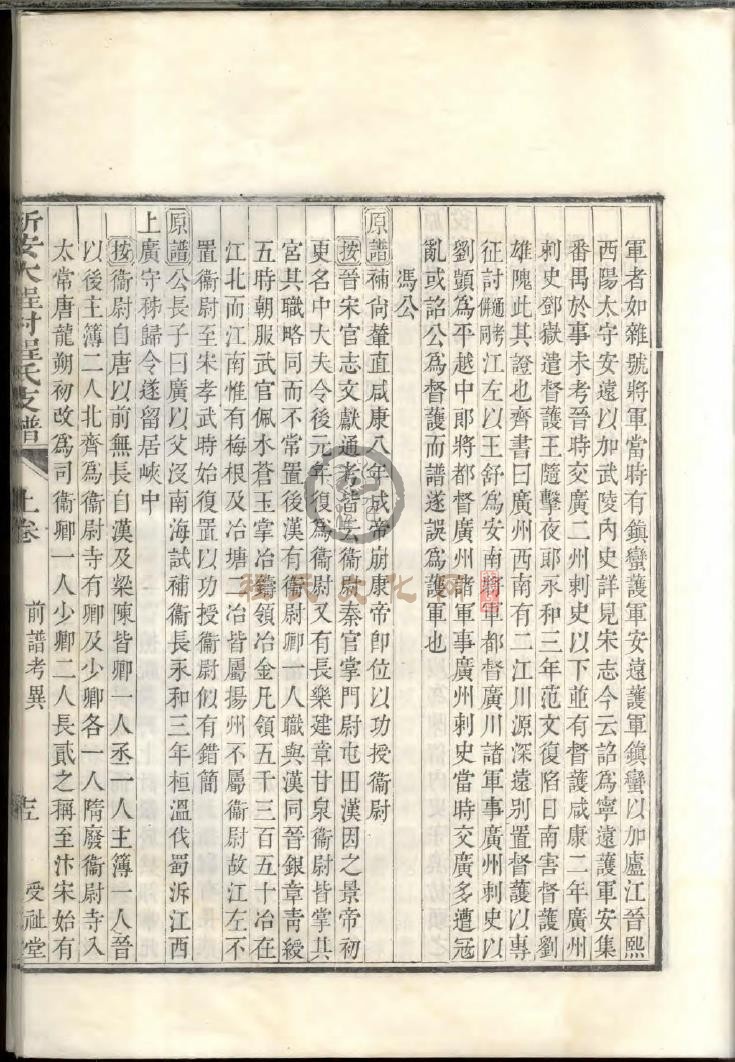 軍者如雜號將軍當時有鎮蠻護軍安遠護軍鎮蠻以加廬江晉熙
西陽太守安遠以加武陵內史詳見宋志今云諮為寧遠護軍安集
番禺於事未考晉時交廣二州刺史以下並有督護咸康二年廣州
刺史鄧嶽遣督護王隨擊夜郎永和三年范文復陷日南害督護劉
雄隗此其證也齊書曰廣州西南有二江川源深遠別置督護以專
征討併通考同江左以王舒為安南將軍都督廣川諸軍事廣州刺史以
劉顗為平越中郎將都督廣州諸軍事廣州刺史當時交廣多遭冦
亂或諮公為督護而譜遂誤為護軍也
馮公
原譜補尚輦直咸康八年成帝崩康帝卽位以功授衞尉
按晉宋官志文獻通考皆云衞尉秦官掌門尉屯田漢因之景帝初
更名中大夫令後元年復為衞尉又有長樂建章甘泉衞尉皆掌其
宮其職略同而不常置後漢有衞尉卿一人職與漢同晉銀章靑綬
五時朝服武官佩水蒼玉掌冶鑄領冶金凡領五千三百五十冶在
江北而江南惟有梅根及冶塘二冶皆屬揚州不屬衞尉故江左不
置衞尉至宋孝武時始復置以功授衞尉似有錯簡
原譜公長子曰廣以父沒南海試補衞長永和三年桓溫伐蜀泝江西
上廣守秭歸令遂留居峽中
按衞尉自唐以前無長自漢及梁陳皆卿一人丞一人主簿一人晉
以後主簿二人北齊為衞尉寺有卿及少卿各一人隋廢衞尉寺入
太常唐龍朔初改為司衞卿一人少卿二人長貳之稱至汴宋始有
新安大程村程氏支譜 上卷 前譜考異 受祉堂
程氏文化網